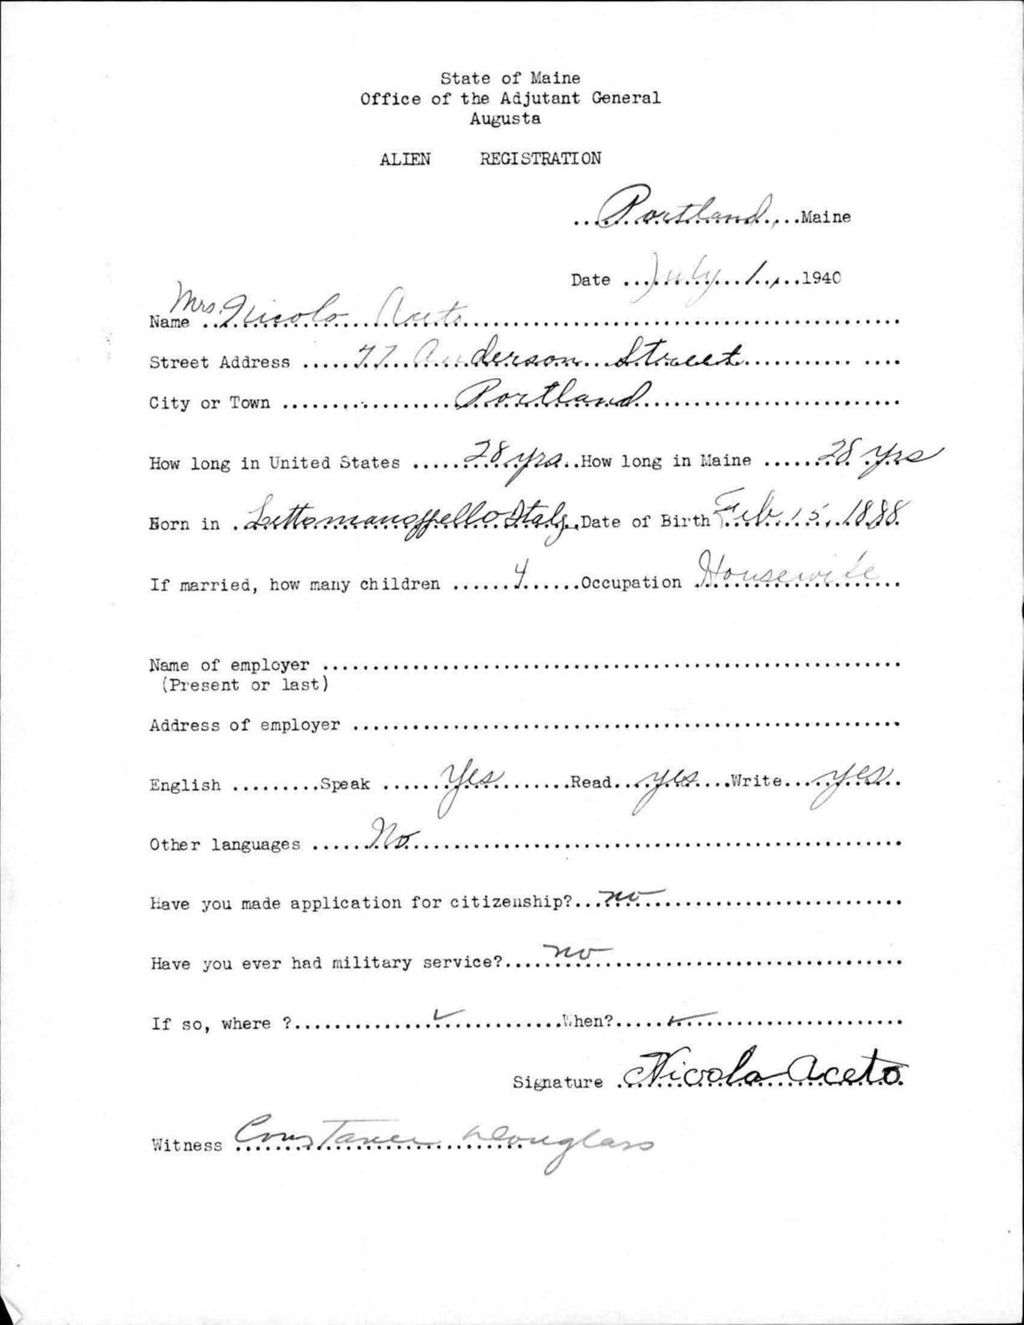 State of Maine
Office of the Adjutant General
Augusta
ALIEN REGISTRATION
Portland, Maine
Date July 1, 1940
Mrs.
Name Nicolo Aceto
Street Address 77 Anderson Street
City or Town Portland
How long in United States 28 yrs. How long in Maine 28 yrs
Born in Lettomanoppello Italy Date of Birth Feb. 15, 1888
If married, how many children 4 Occupation Housewife
Name of employer
(Present or last)
Address of employer
English Speak Yes Read yes Write yes
Other languages No
Have you made application for citizenship? no
Have you ever had military service? no
If so, where ? ✓ When? ✓
Signature Nicola Aceto
Witness Constance Douglass